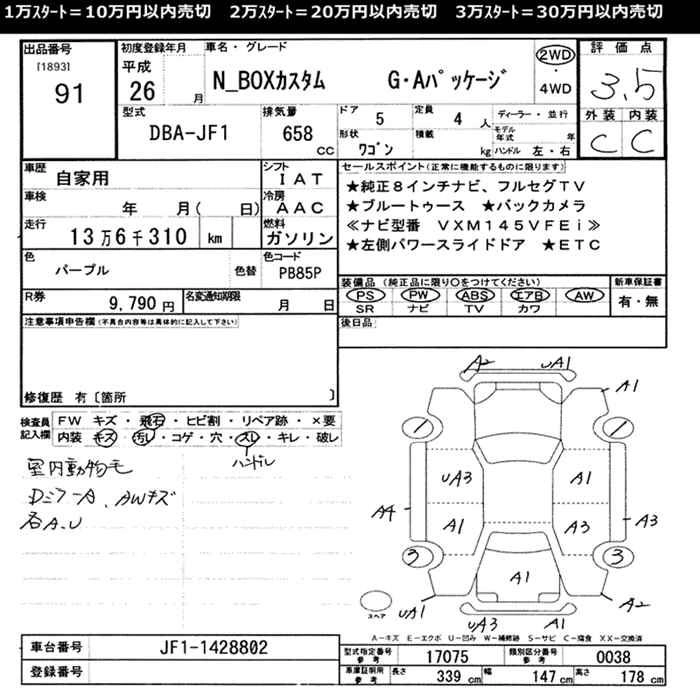 1万ｽﾀｰﾄ＝10万円以内売切 2万ｽﾀｰﾄ＝20万円以内売切 3万ｽﾀｰﾄ＝30万円以内売切
出品番号
[1893]
91
初度登録年月
平成
26 月
車名・グレード
N_BOXカスタム G・Aパッケージ
2WD
・
4WD
評価点
3.5
外装 内装
C C
型式
DBA-JF1
排気量
658 cc
ドア 5
定員 4 人
形状 ワゴン
積載 kg
ディーラー・並行
モデル年式 年
ハンドル 左・右
車歴
自家用
シフト
IAT
車検
年 月( 日)
冷房
AAC
走行
13万6千310 km
燃料
ガソリン
色
パープル
色替
色コード
PB85P
R券
9,790 円
名変通知期限
月 日
セールスポイント(正常に機能するものに限ります)
★純正8インチナビ、フルセグTV
★ブルートゥース ★バックカメラ
≪ナビ型番 VXM145VFEi≫
★左側パワースライドドア ★ETC
装備品(純正品に限り○をつけてください)
PS PW ABS エアB AW
SR ナビ TV カワ
新車保証書
有・無
後日品
注意事項申告欄(不具合内容等は具体的に記入して下さい)
修復歴 有〔箇所 〕
検査員記入欄
FW キズ・飛石・ヒビ割・リペア跡・×要
内装 キズ・汚レ・コゲ・穴・スレ・キレ・破レ
ハンドル
室内動物毛
Dミラ-A、AWキズ
各A.U
A2 UA1
A1
UA3 A1
A4 A1 A3 A3
3 3
A1
UA1 UA3 A1 A2
スペア
A－キズ E－エクボ U－凹み W－補修跡 S－サビ C－腐食 XX－交換済
車台番号 JF1-1428802
登録番号
型式指定番号 参考 17075
類別区分番号 参考 0038
車庫証明用 参考 長さ 339 cm 幅 147 cm 高さ 178 cm